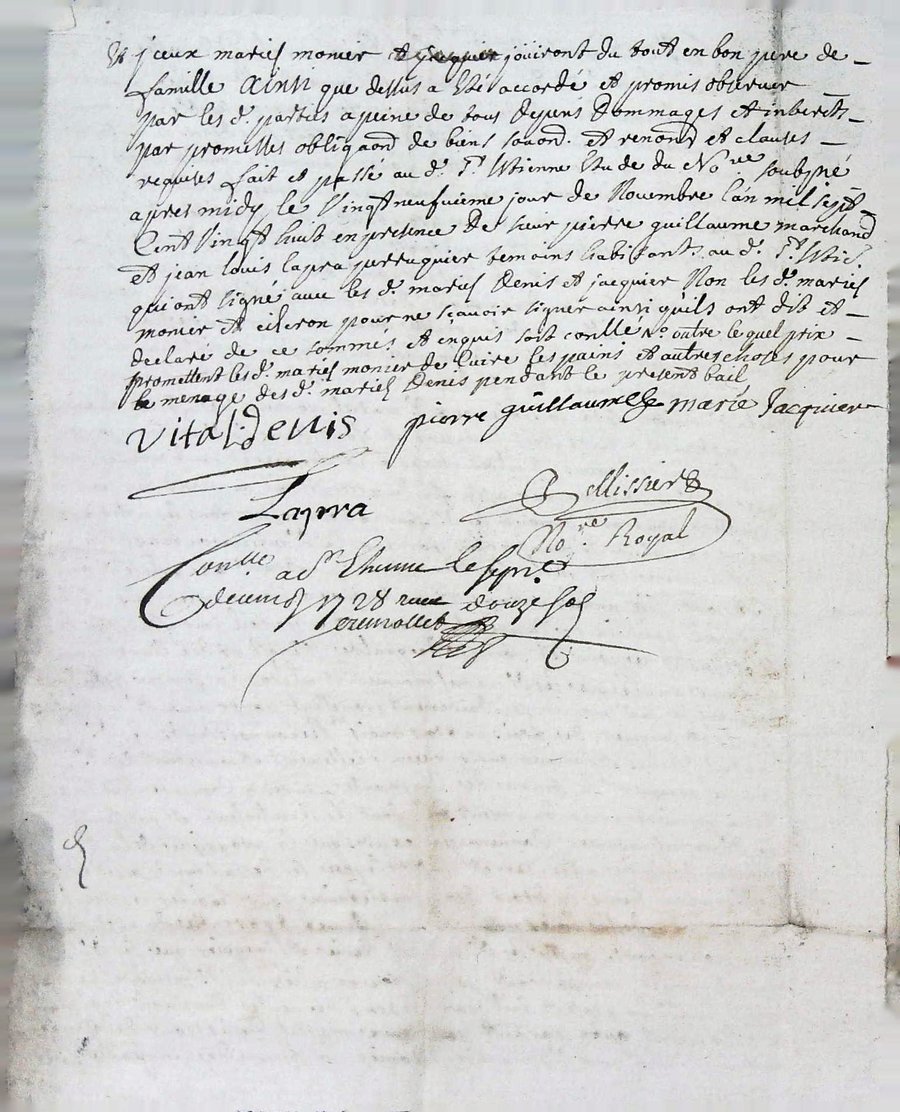 Et jceux mariés monier et jouiront du tout en bon pere de
famille Ainsi que dessus a Esté accordé et promis observer
par les d. parties a peine de tous depens Dommages et interests
par promesses obligaon͞ de biens soon͞d. et renon͞ et clauses
requises fait et passé au d. St. Etienne Etude du Nore. soubsné
apres midy le Vingt neufvieme jour de Novembre l'an mil sept
Cent Vingt huit en presence De sieur pierre guillaume marchand
et jean louis lapra perruquier temoins habitants au d. St. Etie.
qui ont signé avec les d. mariés Denis et jacquier Non les d. mariés
monier et pour ne sçavoir signer ainsi qu'ils ont dit et
declaré de ce sommés et enquis soit conllé No. outre le quel prix
promettent les d. mariés monier de Cuire les pains et autres choses pour
le menage des d. mariés Denis pendant le present bail
Vital Denis pierre guillaume marie Jacquier
Lapra Pellissier
Nore. Royal
Conlle a St. Etienne le sept
decem 1728 douze sols